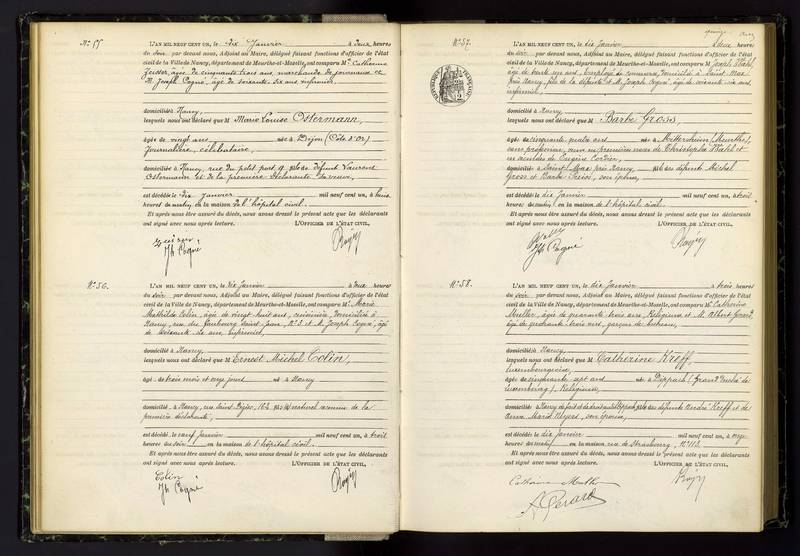 No 55
L'AN MIL NEUF CENT UN, le dix Janvier à deux heures
du soir par devant nous, Adjoint au Maire, délégué faisant fonctions d'officier de l'état
civil de la Ville de Nancy, département de Meurthe-et-Moselle, ont comparu Me Catherine
âgée de cinquante trois ans, marchande de journaux et
M. Joseph Cogné, âgé de soixante-six ans, infirmier,
domiciliés à Nancy,
lesquels nous ont déclaré que M Marie Louise Ostermann,
âgée de vingt ans née à Dijon (Côte d'Or)
Journalière, célibataire,
domiciliée à Nancy, rue du petit port 9 fille de défunt Laurent
Ostermann et de la première déclarante sa veuve,
est décédée le dix Janvier mil neuf cent un, à
heures du matin en la maison de l'hôpital civil.
Et après nous être assuré du décès, nous avons dressé le présent acte que les déclarants
ont signé avec nous après lecture. L'OFFICIER DE L'ÉTAT CIVIL,
Jh Cogné
No 56.
L'AN MIL NEUF CENT UN, le dix Janvier à deux heures
du soir par devant nous, Adjoint au Maire, délégué faisant fonctions d'officier de l'état
civil de la Ville de Nancy, département de Meurthe-et-Moselle, ont comparu Me Marie
Mathilde Colin, âgée de vingt huit ans, cuisinière, domiciliée à
Nancy, rue du faubourg Saint-Jean, No 3 et M. Joseph Cogné, âgé
de soixante-six ans, infirmier,
domicilié à Nancy
lesquels nous ont déclaré que M Ernest Michel Colin,
âgé de trois mois et onze jours né à Nancy
domicilié à Nancy, rue Saint-Dizier, 162 fils naturel reconnu de la
première déclarante,
est décédé le neuf Janvier mil neuf cent un, à trois
heures du soir en la maison de l'hôpital civil.
Et après nous être assuré du décès, nous avons dressé le présent acte que les déclarants
ont signé avec nous après lecture. L'OFFICIER DE L'ÉTAT CIVIL,
Colin
Jh Cogné
No 57.
L'AN MIL NEUF CENT UN, le dix Janvier à deux heures
du soir par devant nous, Adjoint au Maire, délégué faisant fonctions d'officier de l'état
civil de la Ville de Nancy, département de Meurthe-et-Moselle, ont comparu M Joseph Wahl,
âgé de trente un ans, Employé de commerce, domicilié à Saint Max
près Nancy, fils de la défunte et M. Joseph Cogné, âgé de soixante six ans
infirmier
domicilié à Nancy
lesquels nous ont déclaré que M Barbe Gross,
âgée de cinquante quatre ans née à Mittersheim (Meurthe),
sans profession, veuve en premières noces de Christophe Wahl et
en secondes de Eugène Cordier,
domiciliée à Saint Max près Nancy, fille des défunts Michel
Gross et Barbe son épouse,
est décédée le dix Janvier mil neuf cent un, à trois
heures du matin, en la maison de l'hôpital civil.
Et après nous être assuré du décès, nous avons dressé le présent acte que les déclarants
ont signé avec nous après lecture. L'OFFICIER DE L'ÉTAT CIVIL,
Jh Cogné
No 58.
L'AN MIL NEUF CENT UN, le dix Janvier à trois heures
du soir par devant nous, Adjoint au Maire, délégué faisant fonctions d'officier de l'état
civil de la Ville de Nancy, département de Meurthe-et-Moselle, ont comparu Me Catherine
Muller, âgée de quarante-trois ans, Religieuse et M. Albert Gérard,
âgé de quarante trois ans, garçon de bureau,
domiciliés à Nancy,
lesquels nous ont déclaré que M Catherine Kreff,
luxembourgeoise,
âgée de cinquante sept ans née à Dippach (Grand Duché de
Luxembourg), Religieuse,
domiciliée à Nancy de fait et de droit à Dippach, fille des défunts André Kreff et de
Anna Maria Meyers, son épouse,
est décédée le dix Janvier mil neuf cent un, à onze
heures du matin en la maison rue de Strasbourg, No 112
Et après nous être assuré du décès, nous avons dressé le présent acte que les déclarants
ont signé avec nous après lecture. L'OFFICIER DE L'ÉTAT CIVIL,
Catherine Muller
A Gérard